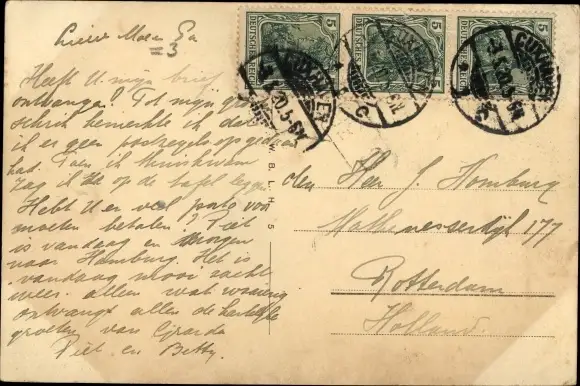 Lieve Moes & Pa
Heeft U mijn brief
ontvangen? Tot mijn
schrik bemerkte ik dat
ik er geen postzegels op gedaan
had. Toen ik thuiskwam
zag ik ze op de tafel liggen
Hebt U er veel porto voor
moeten betalen? Piet
is vandaag en morgen
naar Hamburg. Het is
vandaag mooi zacht
weer alleen wat
ontvangt allen de hartelijke
groeten van Gerarda
Piet en Betty.
5 DEUTSCHES REICH 5
5 DEUTSCHES REICH 5
5 DEUTSCHES REICH 5
CUXHAVEN
CUXHAVEN
CUXHAVEN
W. B. L. H. 5
den Heer J. Homburg
Mathenesserdijk 177
Rotterdam
Holland.